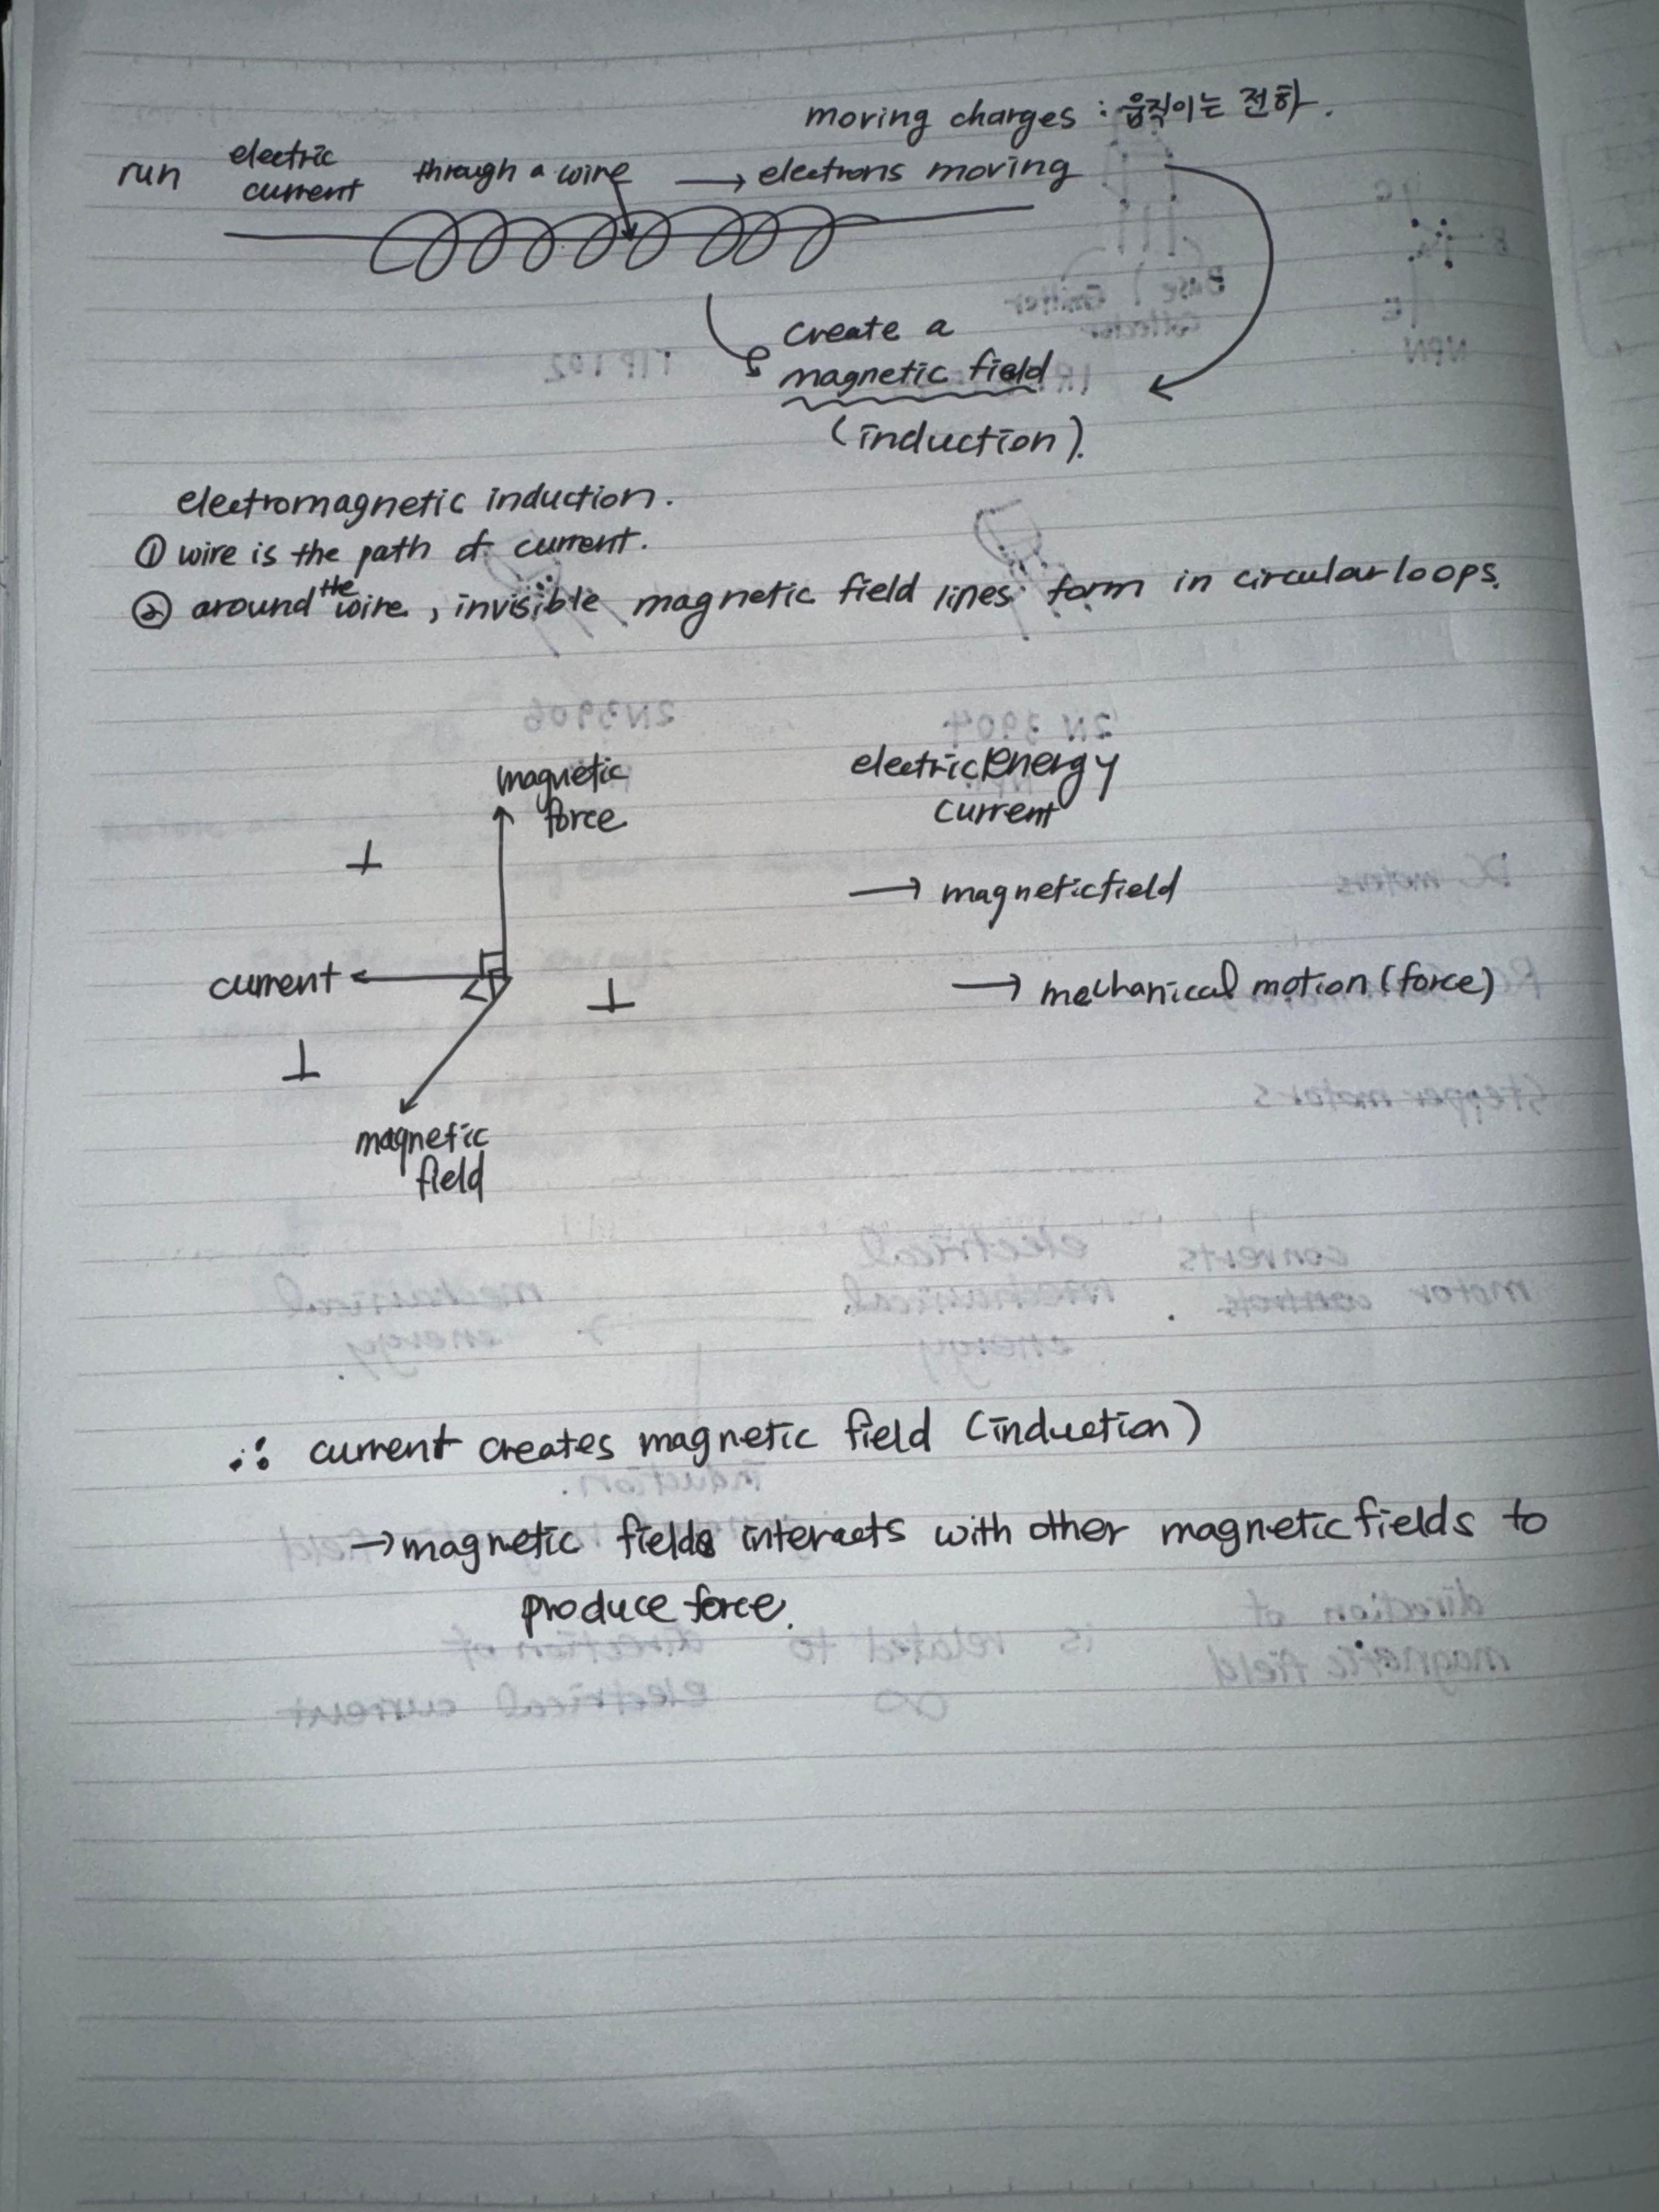 moving charges : 움직이는 전하.
run electric current through a wire → electrons moving
create a
magnetic field
(induction).
electromagnetic induction.
① wire is the path of current.
② around the wire, invisible magnetic field lines form in circular loops.
magnetic
force
electric energy
current
⊥
→ magnetic field
current
⊥
→ mechanical motion (force)
⊥
magnetic
field
∴ current creates magnetic field (induction)
→ magnetic fields interacts with other magnetic fields to
produce force.